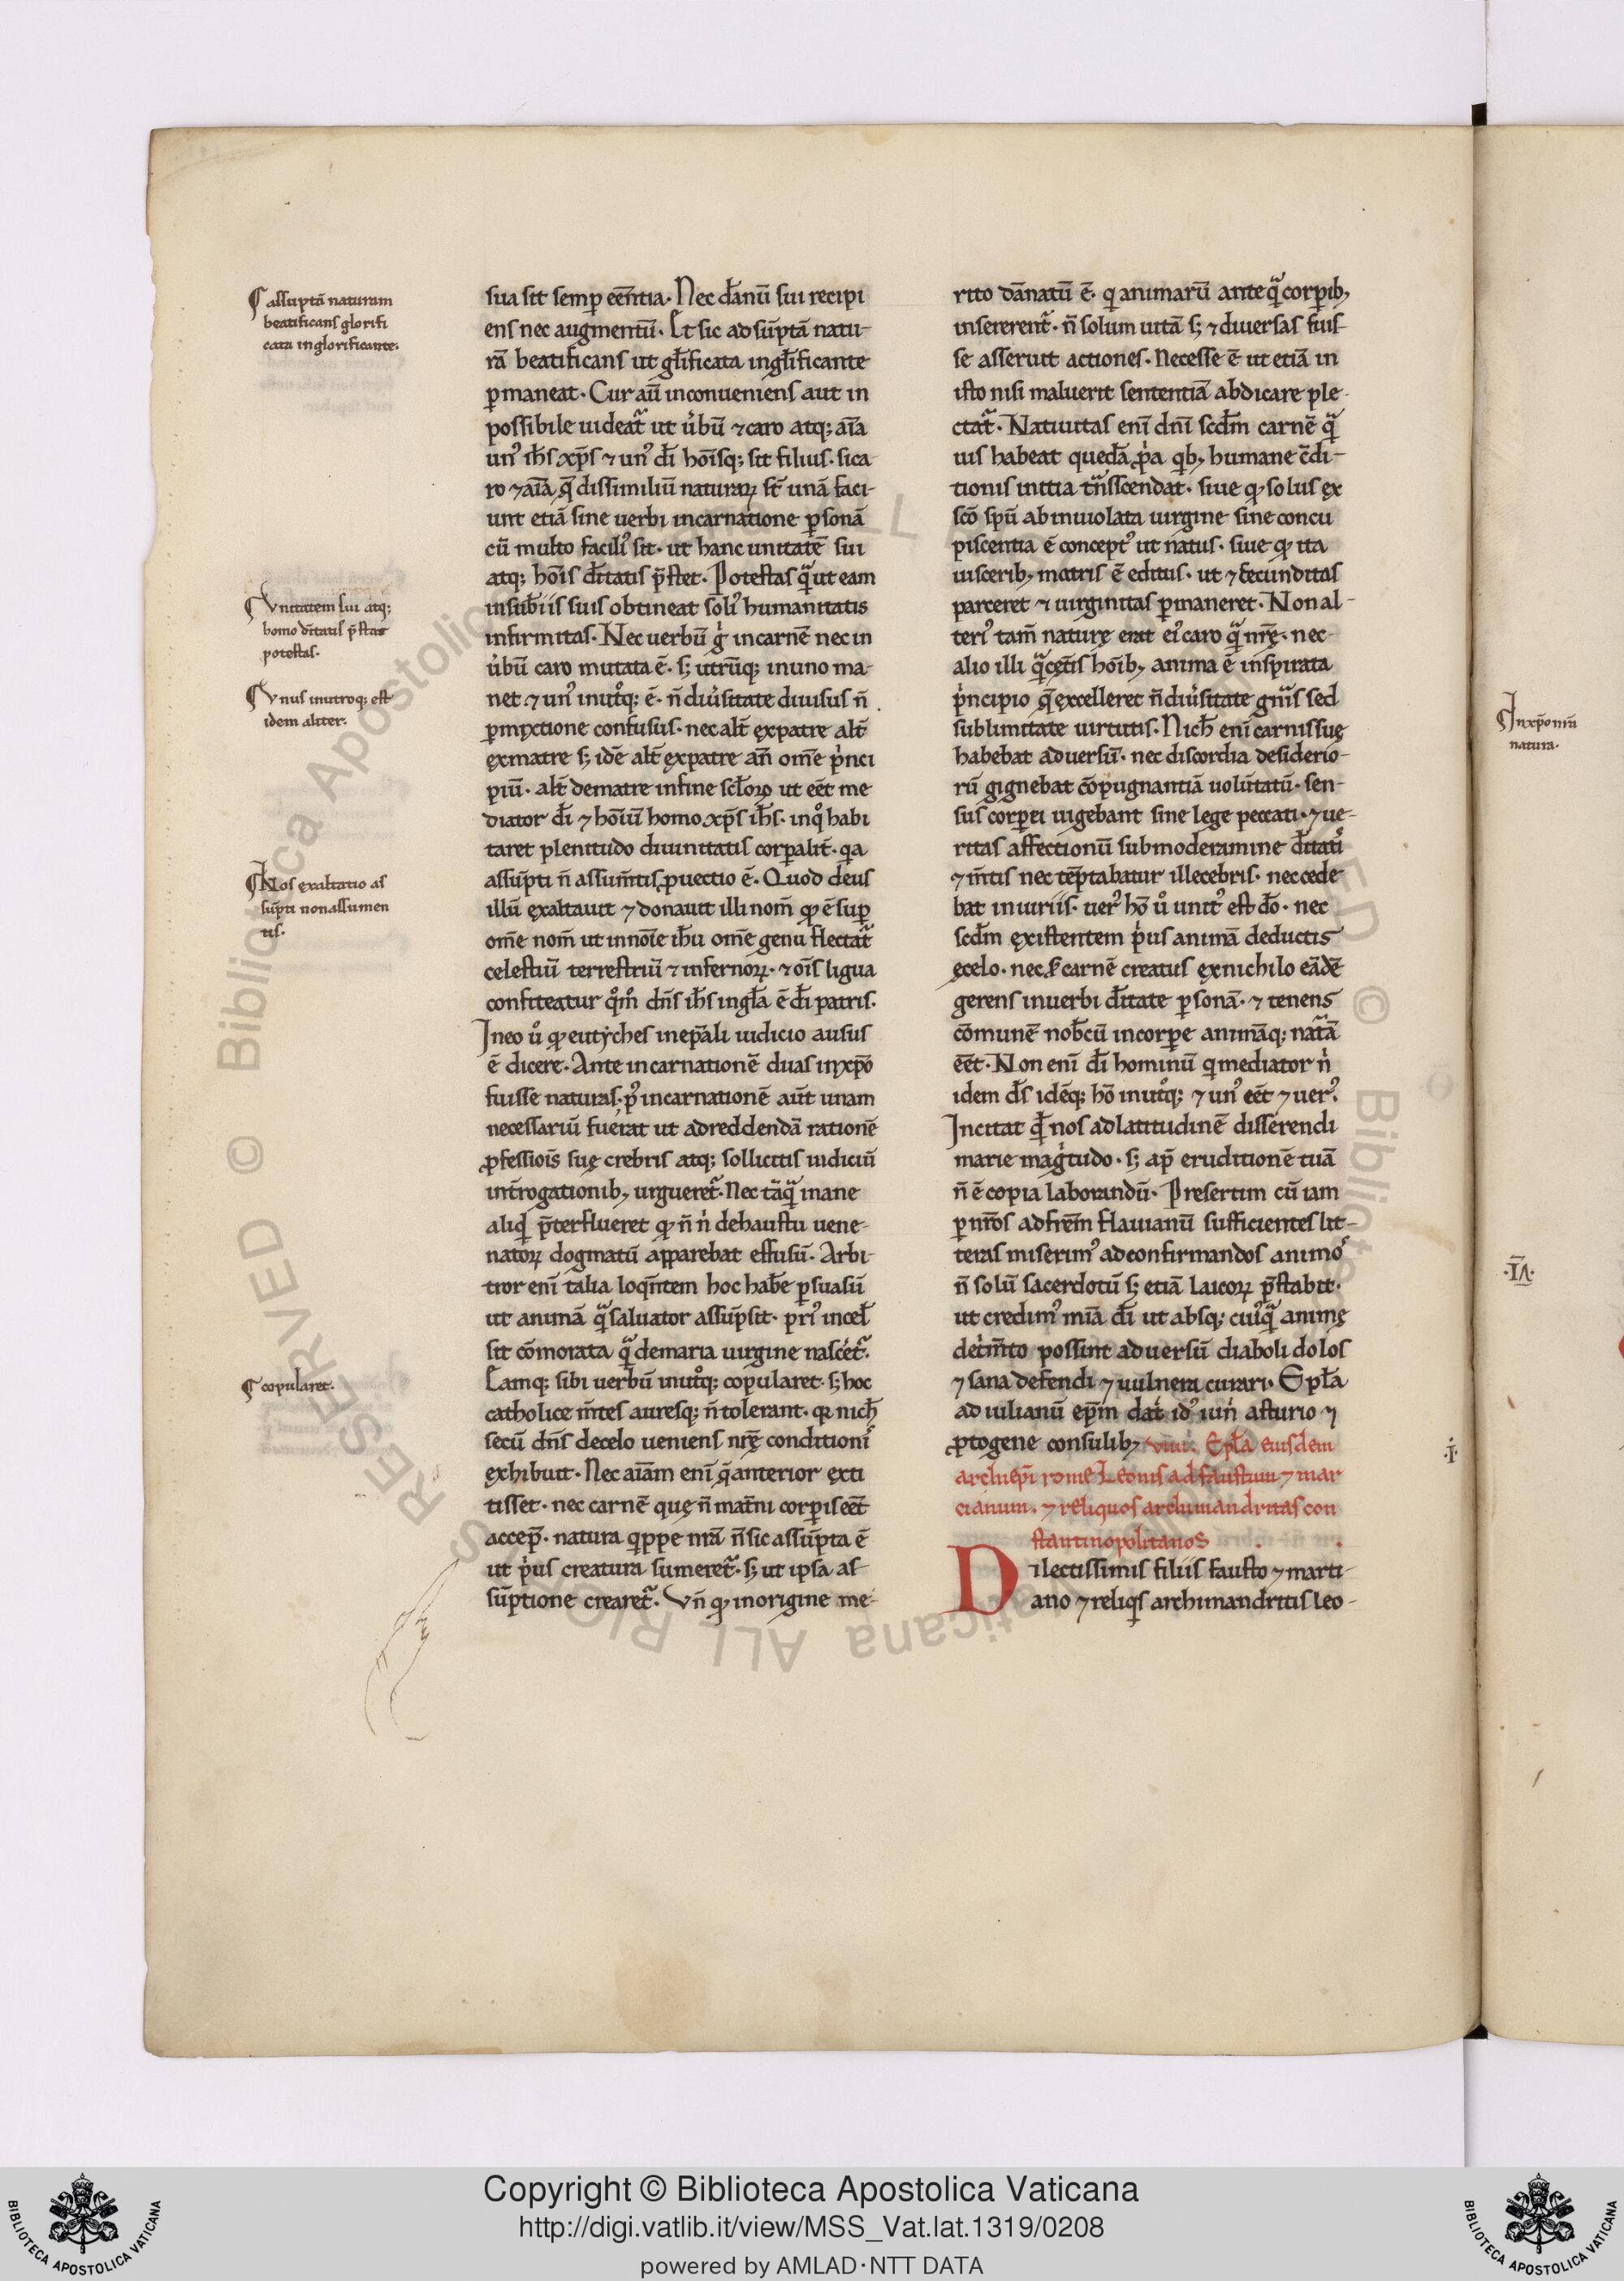 assuptā naturam
beatificans glorifi
cata in glorificante.
Vnitatem sui atq;
homo dītatis p̄stat
potestas.
Vnus inutroq; est
idem aliter.
Nos exaltatio as
sūpti non assumen
tis.
copularet.
sua sit semp eēntia. Nec dānū sui recipi
ens nec augmentū. Et sic ad sūptā natu-
rā beatificans ut gl̄ificata in gl̄ificante
pmaneat. Cur aū inconueniens aut in
possibile uideat̄ ut u̇bū ⁊ caro atq; aīa
un᾽ ih̄s xp̄s ⁊ un᾽ dī hoīsq; sit filius. si ca-
ro ⁊ aīa q̄ dissimiliū naturaꝝ st̄ unā faci-
unt etiā sine uerbi incarnatione psonā
cū multo facili᾽ sit. ut hanc unitatē sui
atq; hoīs dītatis p̄stet. Potestas qͣ ut eam
insubīis suis obtineat soli᾽ humanitatis
infirmitas. Nec uerbū g̊ incarnē nec in
u̇bū caro mutata ē. s; utrūq; inuno ma-
net ⁊ un᾽ inut̊q; ē. n̄ diu̇sitate diuisus n̄
pmyctione confusus. nec alt̄ expatre alt̄
ęxmatre s; idē alt̄ ęxpatre an̄ om̄e p̍nci
piū. alt̄ dematre infine scl̄oꝝ ut eēt me
diator dī ⁊ hoīuī homo xp̄s ih̄s. inq̊ habi
taret plenitudo diuinitatis corpalit̄. qa
assūpti n̄ assum̄tis ꝓuectio ē. Quod deus
illū ęxaltauit ⁊ donauit illi nom̄ ꝙ ē sup
om̄e nom̄ ut innoīe ih̄u om̄e genu flectat̄
celestiū terrestriū ⁊ infernoꝝ. ⁊ oīs ligua
confiteatur q̊m̊ dn̄s ih̄s ingl̄a ē dī patris.
Ineo u̇̊ ꝙ eutẏches inep̄ali iudicio ausus
ē dicere. Ante incarnationē duas inxp̄o
fuisse naturas. p᾽ incarnationē aūt unam
necessariū fuerat ut adreddendā rationē
ꝓfessiois suę crebris atq; sollicitis iudiciū
int̄rogationib; urgueret̄. Nec tāqͣ inane
aliqd p̄terflueret ꝙ n̄ n̍ dehaustu uene-
natoꝝ dogmatū apparebat effusū. Arbi-
tror enī talia loqn̄tem hoc hab̄e psuasū
ut animā qͣ saluator assūpsit. pri᾽ incel̄
sit cōmorata qͣ demaria uirgine nascėt̄.
Eamq; sibi uerbū inut̊q; copularet. s; hoc
catholice m̄tes auresq; n̄ tolerant. qꝛ nich̄
secū dn̄s decelo ueniens nr̄ę conditioni᾽
ęxhibuit. Nec aīam enī q̄ anterior exti
tisset. nec carnē que n̄ mat̄ni corpis eēt
accep̄. natura qppe nr̄ā n̄ sic assūpta ē
ut p̍us creatura sumeret̄. s; ut ipsa as-
sūptione crearet̄. Vn̄ ꝙ inorigine me-
rito dānatū ē. q animarū anteqͣ corpib;
insererent̄. n̄ solum uitā s; ⁊ diuersas fuis-
se asseruit actiones. Necesse ē ut etiā in
isto nisi maluerit sententiā abdicare ple-
ctat̄. Natiuitas enī dn̄i scd̄m carnē qͣ
uis habeat quedā ꝓp̍a qb; humane cōdi-
tionis initia tn̄sscendat. siue ꝙ solus ęx
scō spū abinuiolata uirgine sine concu
piscentia ē concept᾽ ut natus. siue ꝙ ita
uisceribus matris ē editus. ut ⁊ fecunditas
parceret ⁊ uirginitas pmaneret. Non al-
teri᾽ tam̄ naturę erat ei᾽ caro qͣ nr̄ę. nec
alio illi qͣ cęt̄is hoīb; anima ē inspirata
p̍ncipio q̄ ęxcelleret n̄ diu̇sitate gn̄is sed
sublimitate uirtutis. Nich̄ enī carnis suę
habebat aduersū. nec discordia desiderio-
rū gignebat cōpugnantiā uolūtatū. sen-
sus corpei uigebant sine lege peccati. ⁊ ue-
ritas affectionū submoderamine dītati᾽
⁊ m̄tis nec tēptabatur illecebris. nec cede
bat iniuriis. uer᾽ hō u̇̊ unit᾽ est dō. nec
scd̄m ęxistentem p̍us animā deductis
ęcelo. nec s̄ carnē creatus ęxnichilo eādē
gerens inuerbi dītate psonā. ⁊ tenens
cōmunē nob̄cū incorpe animāq; nat̄ā
eēt. Non enī dī hominū q mediator n̍
idem d̄s idēq; hō inut̊q; ⁊ un᾽ eēt ⁊ uer᾽.
Incitat qd nos adlatitudinē disserendi
marie mag̍tudo. s; ap̄ eruditionē tuā
n̄ ē copia laborandū. Presertim cū iam
p nr̄os adfrēm flauianū sufficientes lit-
teras miserim᾽ ad confirmandos animo᾽
n̄ solū sacerdotū s; etiā laicoꝝ p̄stabit.
ut credim᾽ mīa dī ut absq; cui᾽qͣ animę
det̍m̄to possint aduersū diaboli dolos
⁊ sana defendi ⁊ uulnera curari. Epl̄a
ad iulianū ep̄m dat̄ id᾽ iun̍ asturio ⁊
ꝓtogene consulib; viiii. Epl̄a eiusdem
archiep̄i rome Leonis ad faustum ⁊ mar
cianum. ⁊ reliquos archimandritas con
stantinopolitanos
Dilectissimis filiis fausto ⁊ marti-
ano ⁊ reliqs archimandritis Leo-
Inxp̄o nr̄a
natura.
Copyright © Biblioteca Apostolica Vaticana
http://digi.vatlib.it/view/MSS_Vat.lat.1319/0208
powered by AMLAD·NTT DATA
BIBLIOTECA APOSTOLICA VATICANA
BIBLIOTECA APOSTOLICA VATICANA